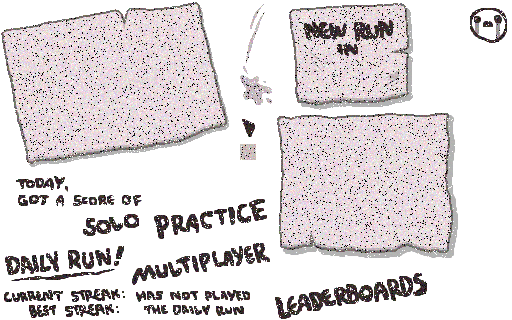 NEW RUN
IN
TODAY,
GOT A SCORE OF
SOLO PRACTICE
DAILY RUN!
MULTIPLAYER
CURRENT STREAK: HAS NOT PLAYED
BEST STREAK: THE DAILY RUN
LEADERBOARDS